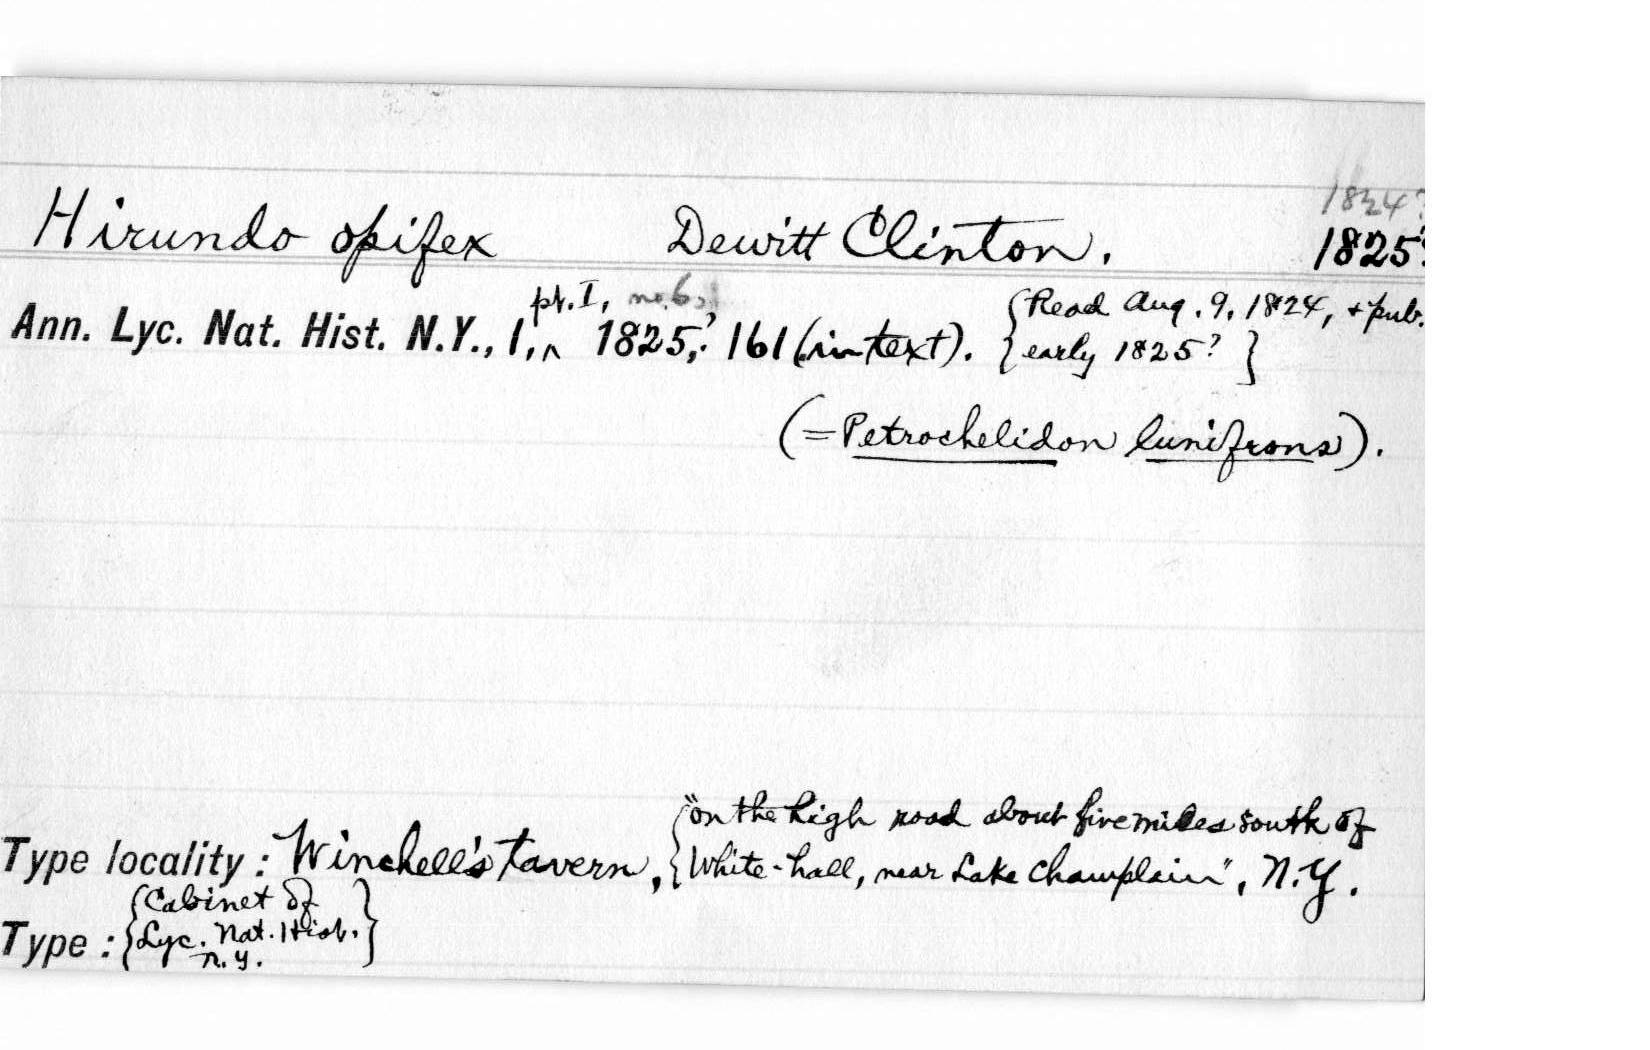 1824?
Hirundo opifex Dewitt Clinton. 1825?
Ann. Lyc. Nat. Hist. N.Y., 1, pt. I, no. 6, 1825,? 161 (in text). {Read Aug. 9, 1824, + pub.
early 1825?}
(=Petrochelidon lunifrons).
"on the high road about five miles south of
Type locality: Winchell's tavern, {White-hall, near Lake Champlain", N.Y.
{Cabinet of
Type: Lyc. Nat. Hist.}
N.Y.